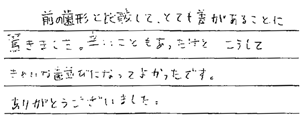 前の歯形と比較して、とても差があることに
驚きました。辛いこともあったけど こうして
きれいな歯並びになってよかったです。
ありがとうございました。